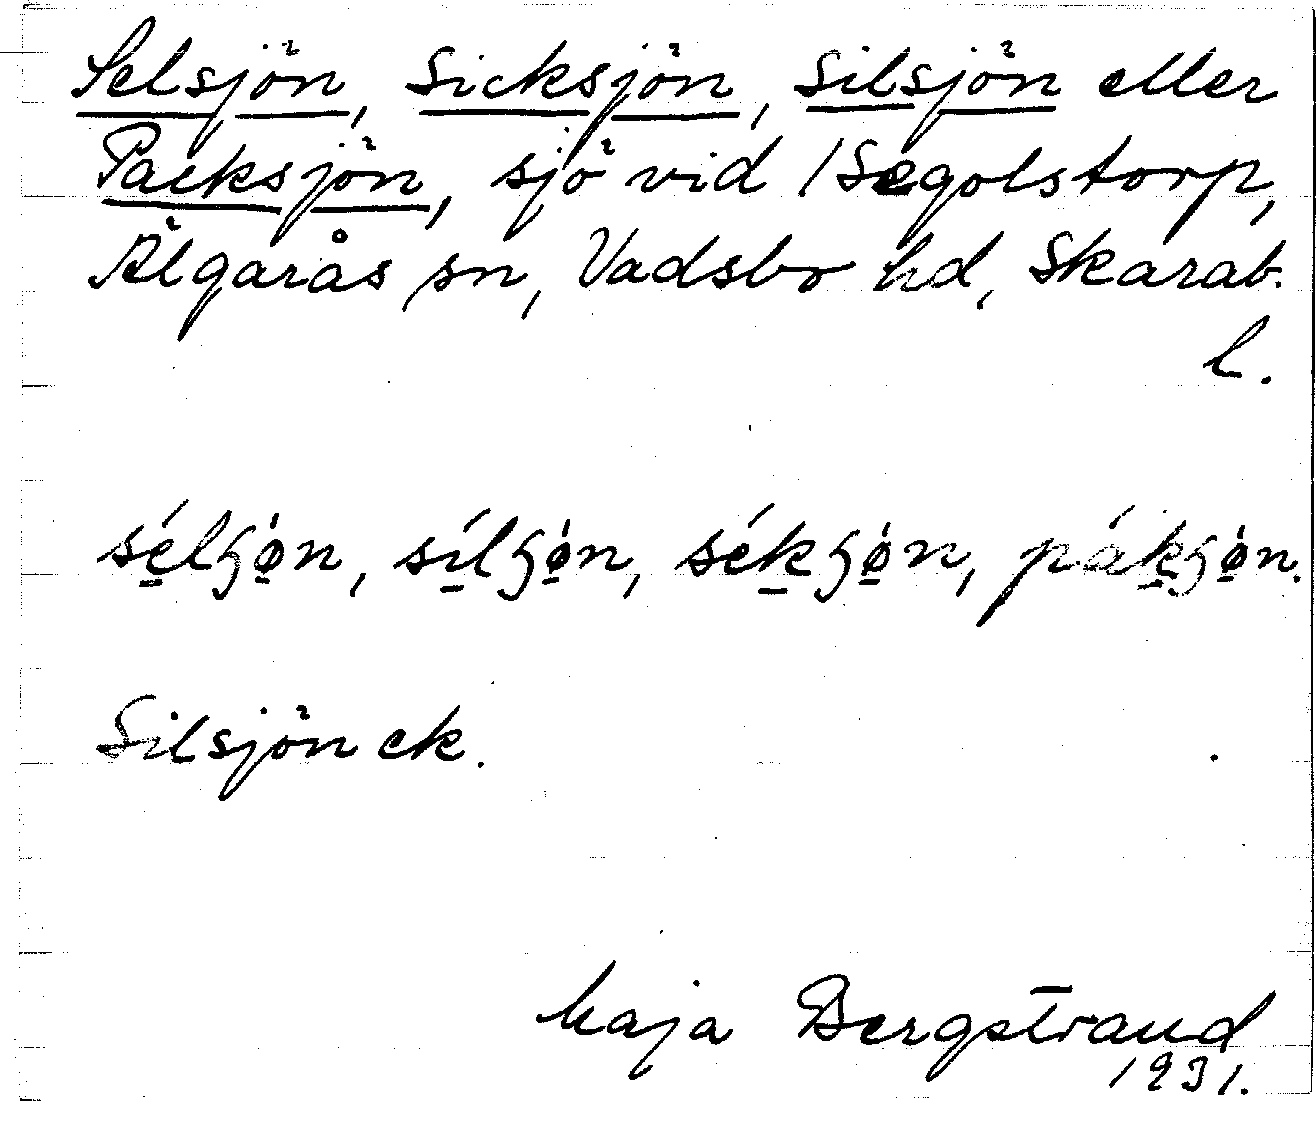 Selsjön, Sicksjön, Silsjön eller
Packsjön, sjö vid /Segolstorp,
Älgarås sn, Vadsbo hd, Skarab.
l.
sélʃø̀n, sílʃø̀n, sékʃø̀n, pákʃø̀n.
Silsjön ek.
Maja Bergstrand
1931.